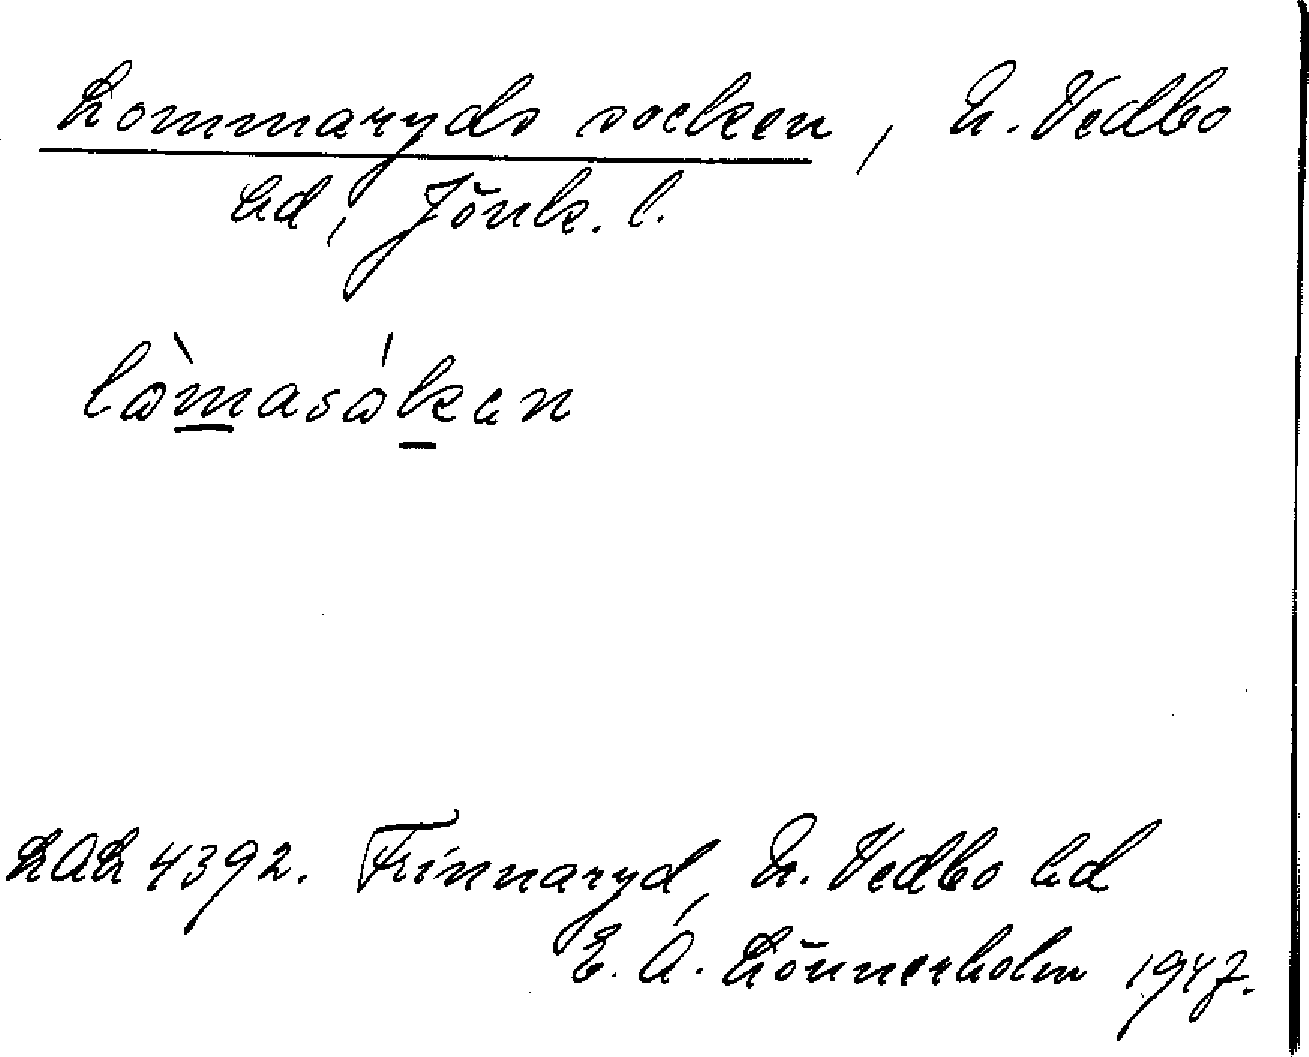 Lommaryds socken, N. Vedbo
hd, Jönk. l.
lòmasóken
LAL 4392. Frinnaryd, N. Vedbo hd
E. A. Lönnerholm 1947.